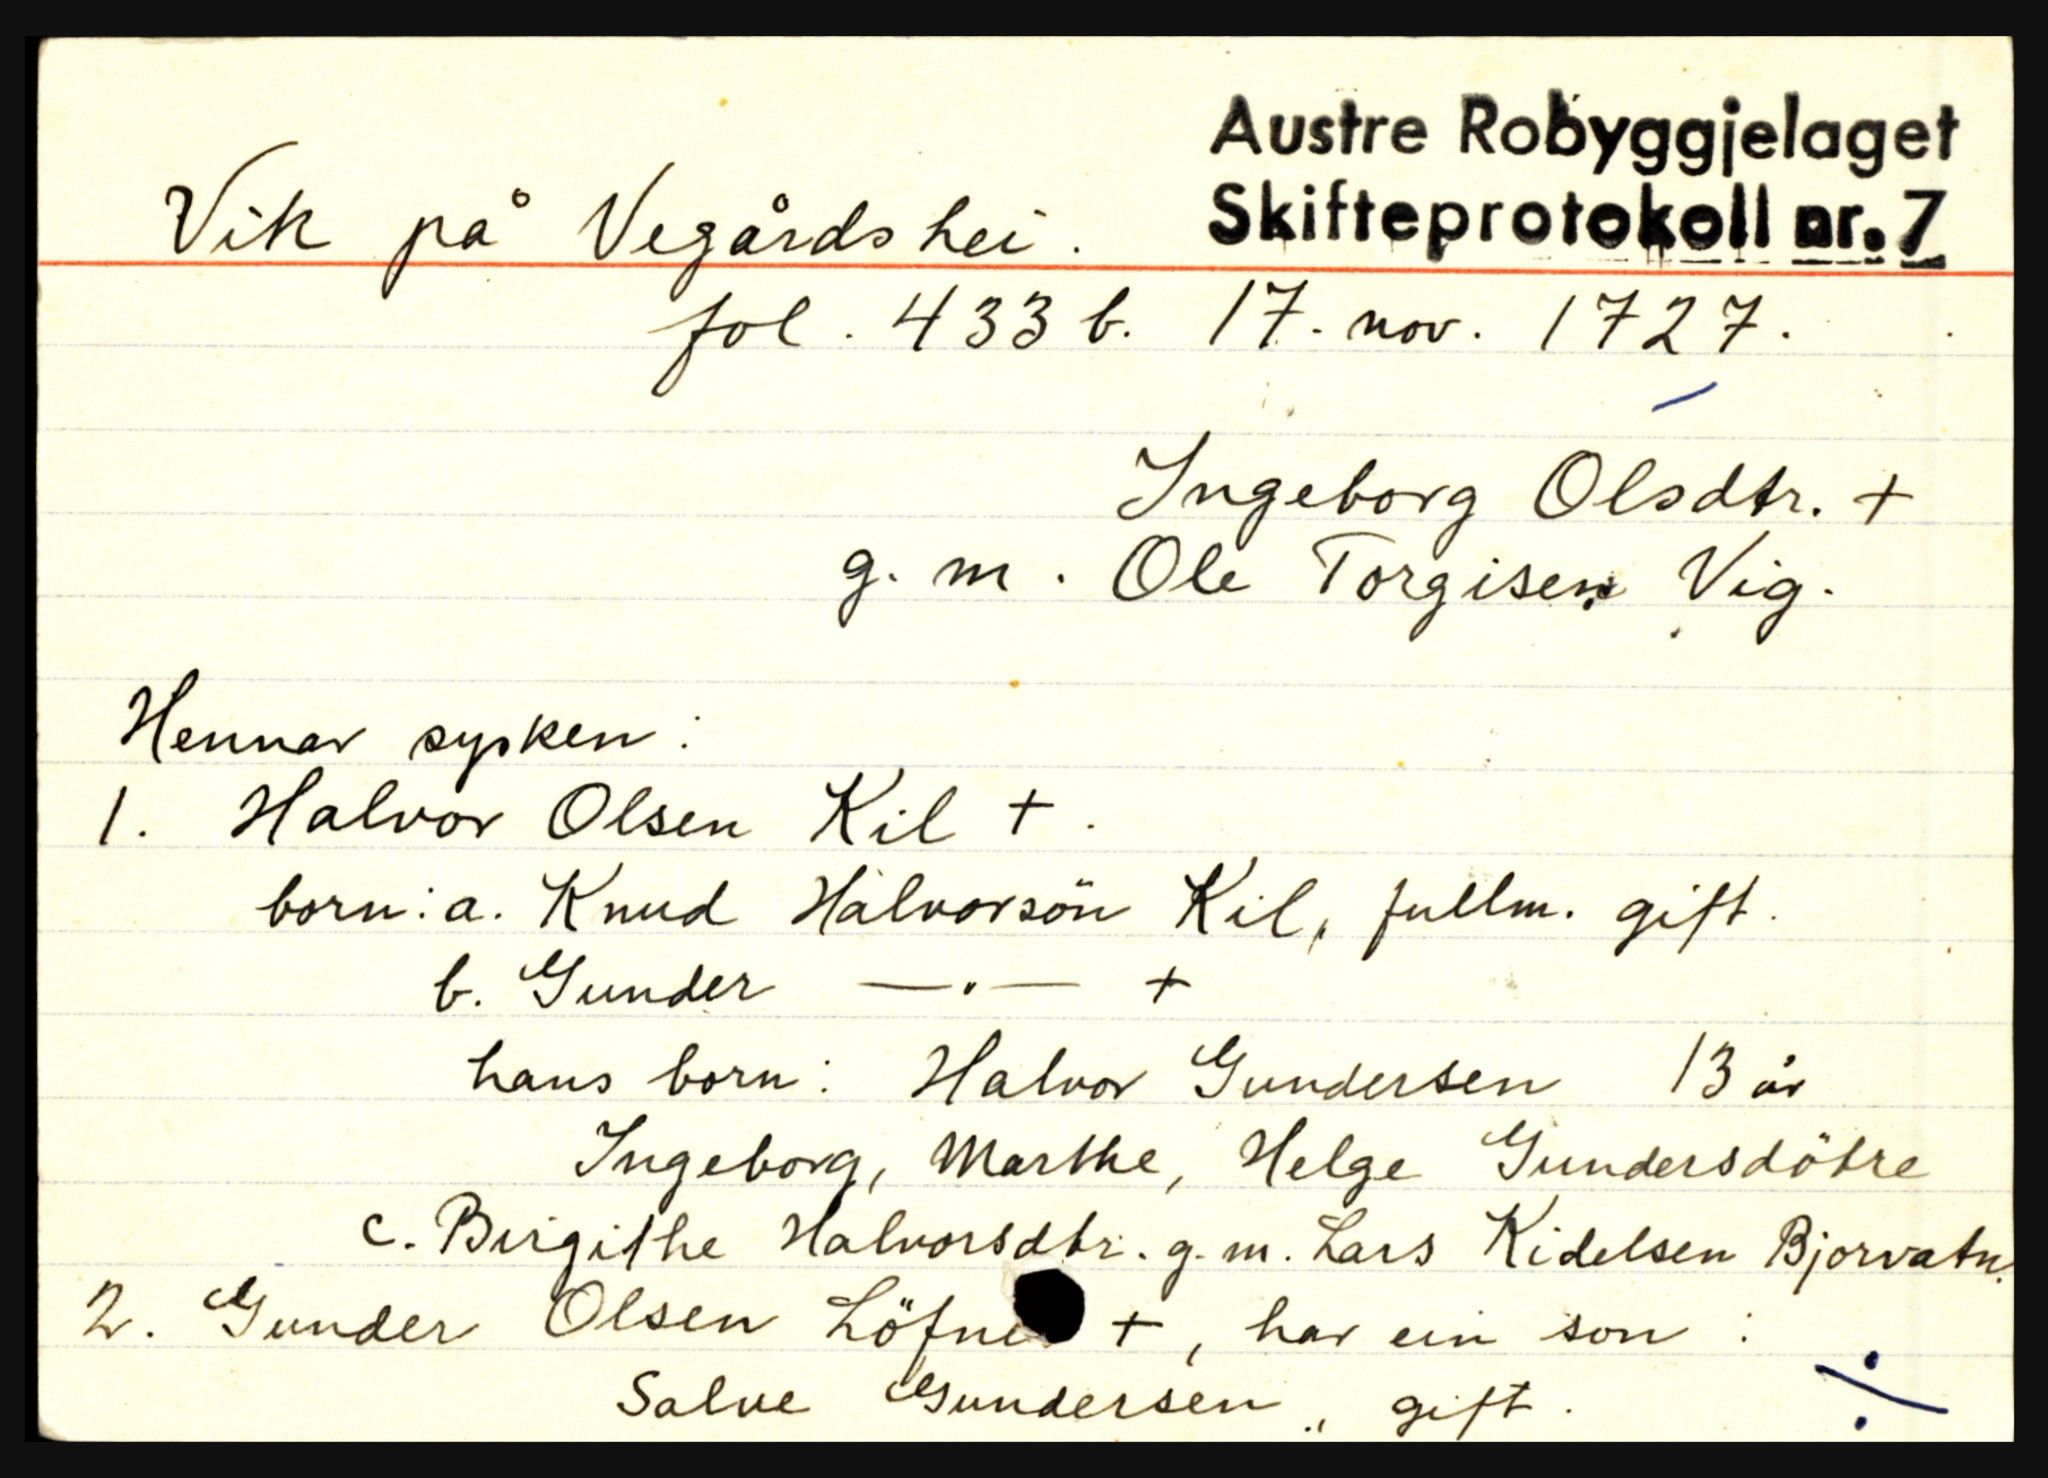 Austre Robyggjelaget
Skifteprotokoll nr. 7
Vik på Vegårdshei.
fol. 433 b. 17. nov. 1727.
Ingeborg Olsdtr. +
g. m. Ole Torgisen Vig.
Hennar sysken:
1. Halvor Olsen Kil +.
born: a. Knud Halvorsön Kil, fullm. gift.
b. Gunder —·— +
hans born: Halvor Gundersen 13 år
Ingeborg, Marthe, Helge Gundersdötre
c. Birgithe Halvorsdtr. g. m. Lars Kidelsen Bjorvatn.
2. Gunder Olsen +, har ein son:
Salve Gundersen, gift.
÷